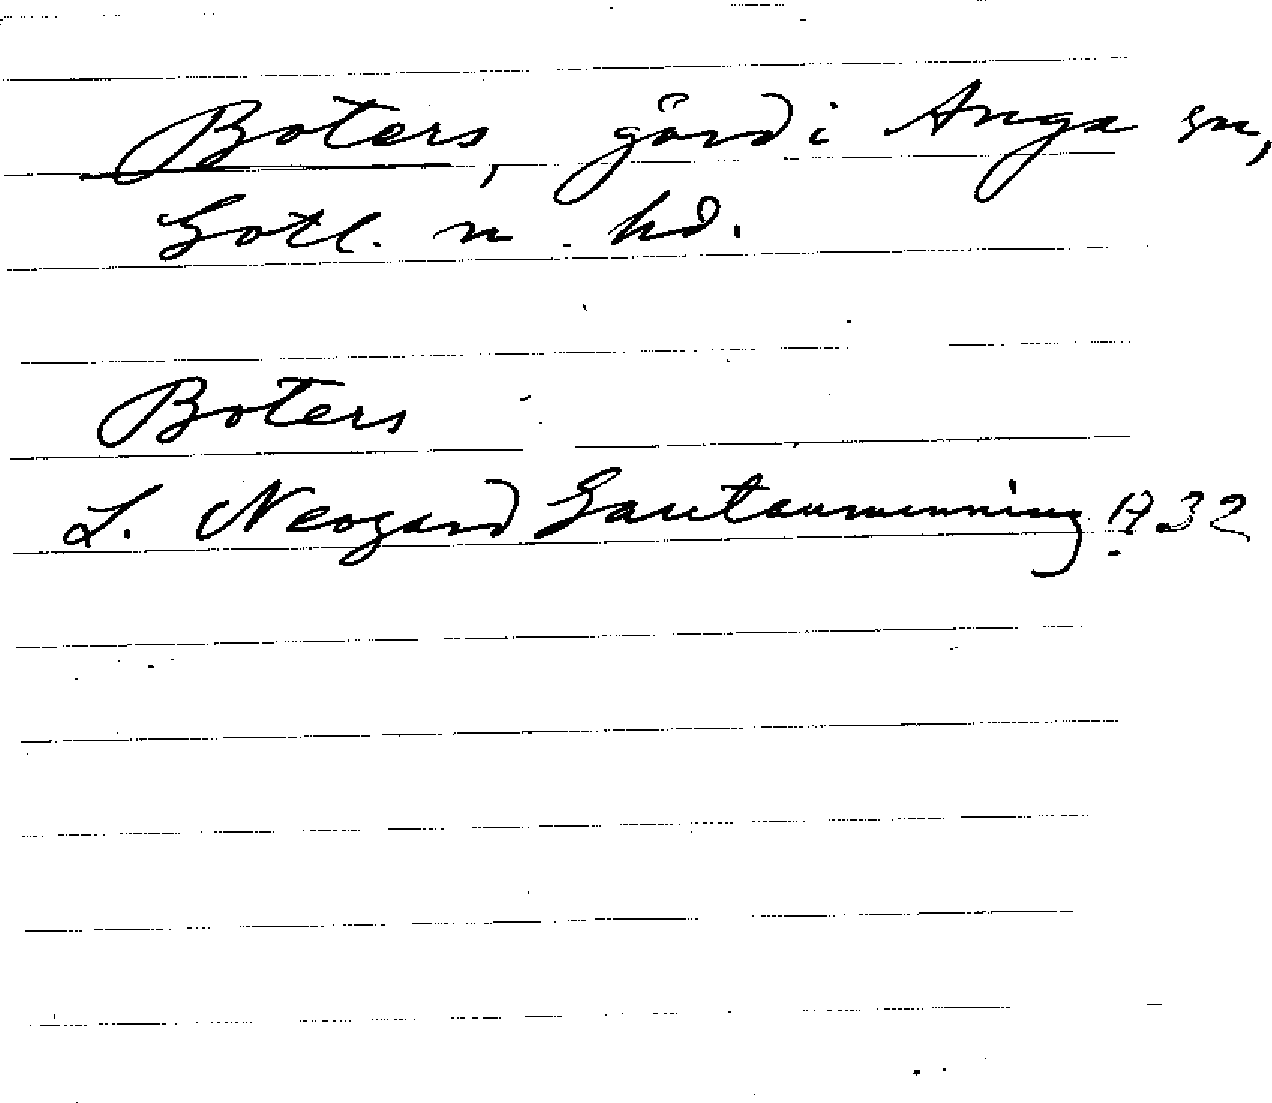 Boters, gård i Anga sn,
Gotl. n. hd.
Boters
L. Neogard Gautauminning 1732